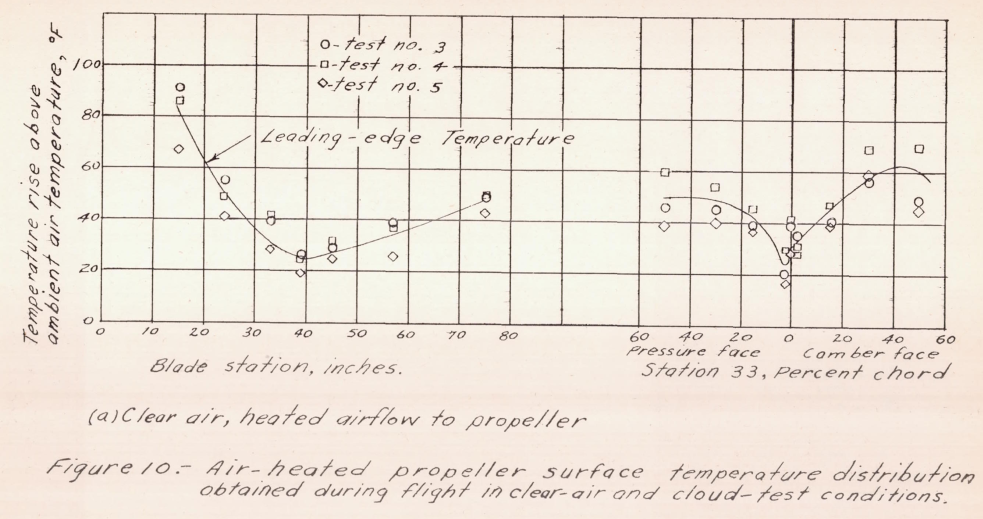 Temperature rise above
ambient air temperature, °F
100
80
60
40
20
0
O-test no. 3
□-test no. 4
◇-test no. 5
Leading-edge Temperature
0 10 20 30 40 50 60 70 80
60 40 20 0 20 40 60
Blade station, inches.
Pressure face Camber face
Station 33, Percent chord
(a) Clear air, heated airflow to propeller
Figure 10.- Air-heated propeller surface temperature distribution
obtained during flight in clear-air and cloud-test conditions.